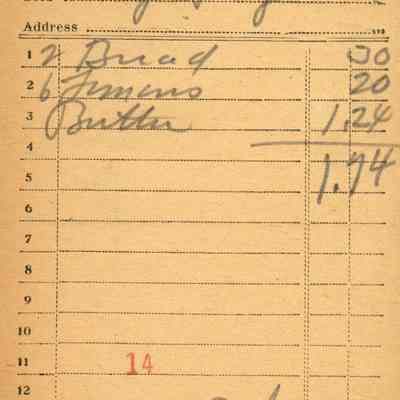 Address
1 2 Bread 30
2 6 Lemons 20
3 Butter 1.24
4
5 1.74
6
7
8
9
10
11 14
12